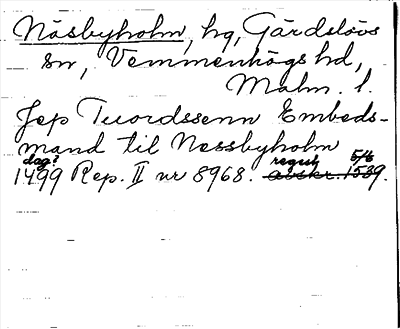 Näsbyholm, hg, Gärdslövs
sn, Vemmenhögs hd,
Malm. l.
Jep Tuordssenn Embeds-
mand til Nessbyholm
dag? regist 5/6
1499 Rep. II nr 8968. avskr. 1539.